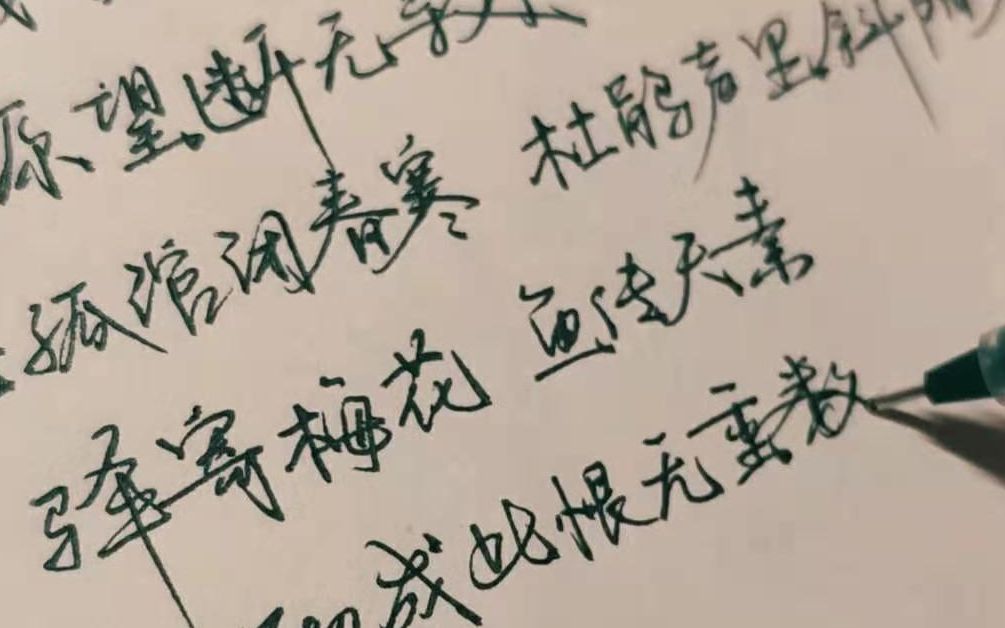 原望断无寻
孤馆闭春寒 杜鹃声里斜阳
驿寄梅花 鱼传尺素
砌成此恨无重数